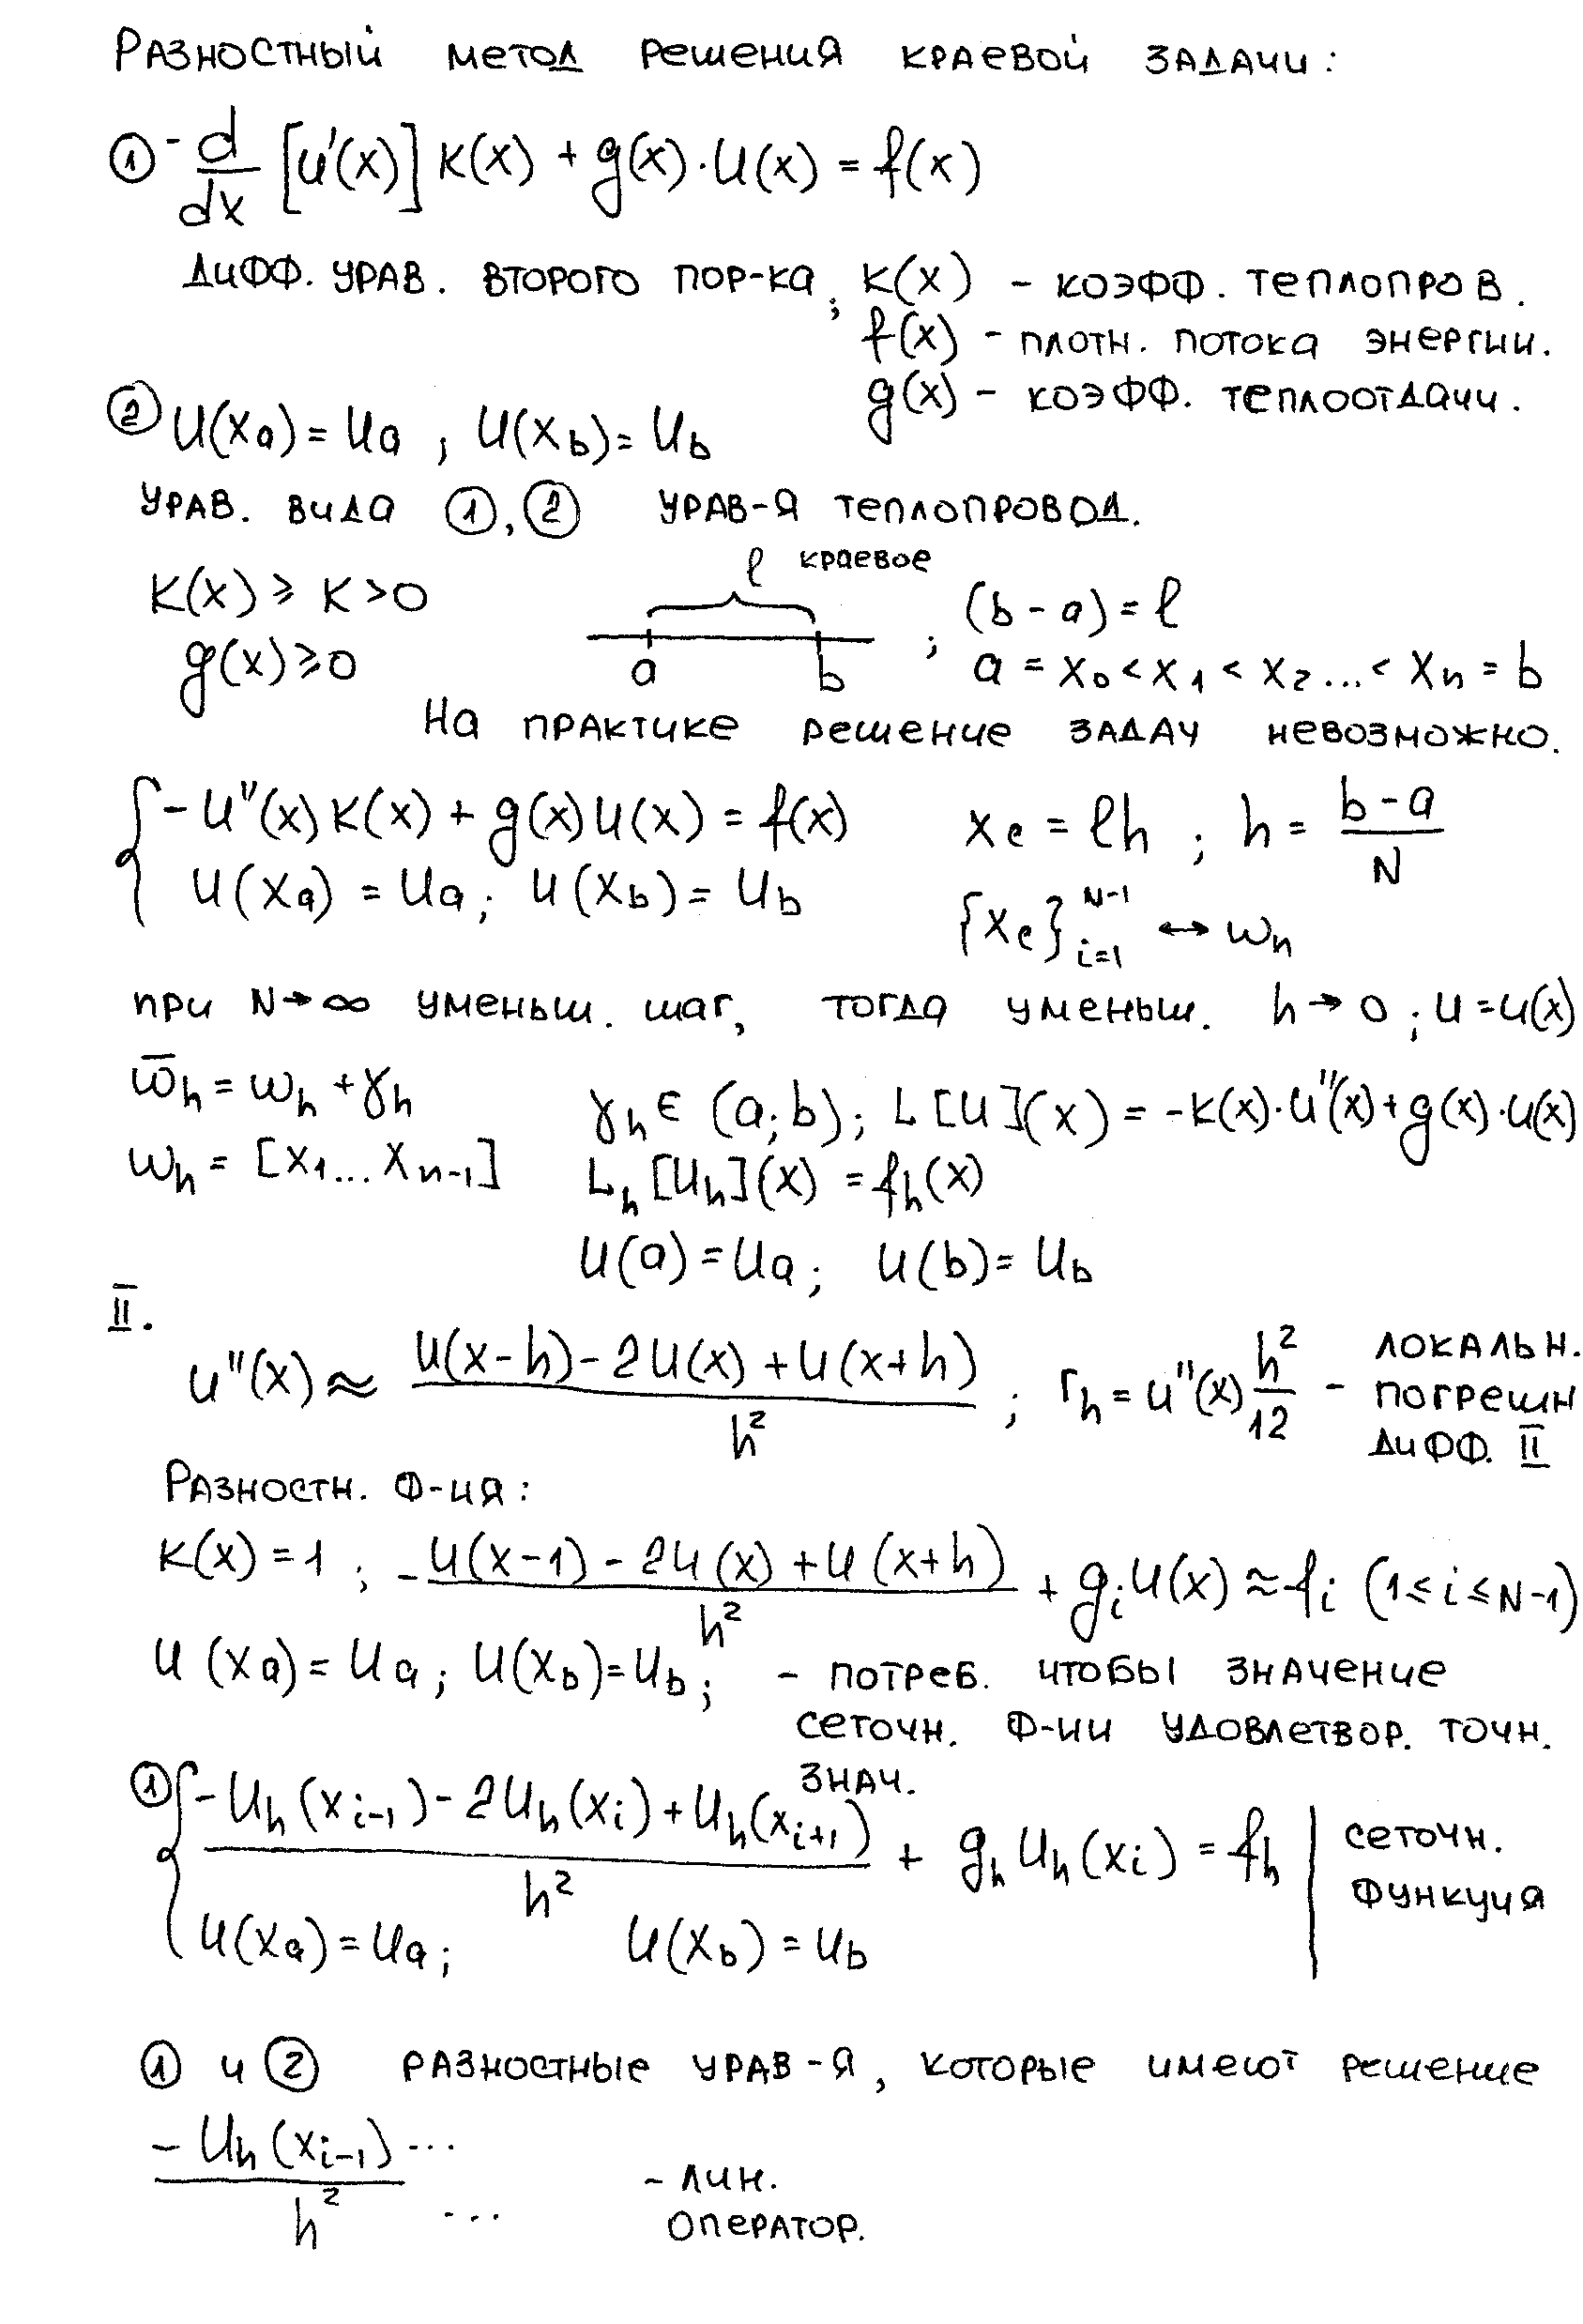 Разностный метод решения краевой задачи:
① -d/dx [u'(x)] k(x) + g(x)·u(x) = f(x)
дифф. урав. второго пор-ка; k(x) - коэфф. теплопров.
f(x) - плотн. потока энергии.
g(x) - коэфф. теплоотдачи.
② u(xₐ) = uₐ ; u(x_b) = u_b
урав. вида ①, ② урав-я теплопровод.
ℓ краевое
k(x) ≥ k > 0
(b - a) = ℓ
g(x) ≥ 0
a b ; a = x₀ < x₁ < x₂ ... < xₙ = b
На практике решение задач невозможно.
{ -u''(x) k(x) + g(x) u(x) = f(x) x_e = ℓh ; h = (b - a)/N
u(xₐ) = uₐ ; u(x_b) = u_b {x_e}_{i=1}^{N-1} ↔ ωₙ
при N → ∞ уменьш. шаг, тогда уменьш. h → 0 ; u = u(x)
ω̄_h = ω_h + γ_h γ_h ∈ (a; b) ; L[u](x) = -k(x)·u''(x) + g(x)·u(x)
ω_h = [x₁ ... x_{n-1}] L_h[u_h](x) = f_h(x)
u(a) = uₐ ; u(b) = u_b
II.
u''(x) ≈ (u(x-h) - 2u(x) + u(x+h))/h² ; r_h = u''(x) h²/12 - локальн.
погрешн
дифф. II
Разностн. ф-ия:
k(x) = 1 ; -(u(x-1) - 2u(x) + u(x+h))/h² + g_i u(x) ≈ f_i (1 ≤ i ≤ N-1)
u(xₐ) = uₐ ; u(x_b) = u_b ; - потреб. чтобы значение
сеточн. ф-ии удовлетвор. точн.
знач.
① { (-u_h(x_{i-1}) - 2u_h(x_i) + u_h(x_{i+1}))/h² + g_h u_h(x_i) = f_h | сеточн.
функция
u(xₐ) = uₐ ; u(x_b) = u_b
① и ② разностные урав-я, которые имеют решение
(-u_h(x_{i-1}) ...)/h² ... - лин.
оператор.